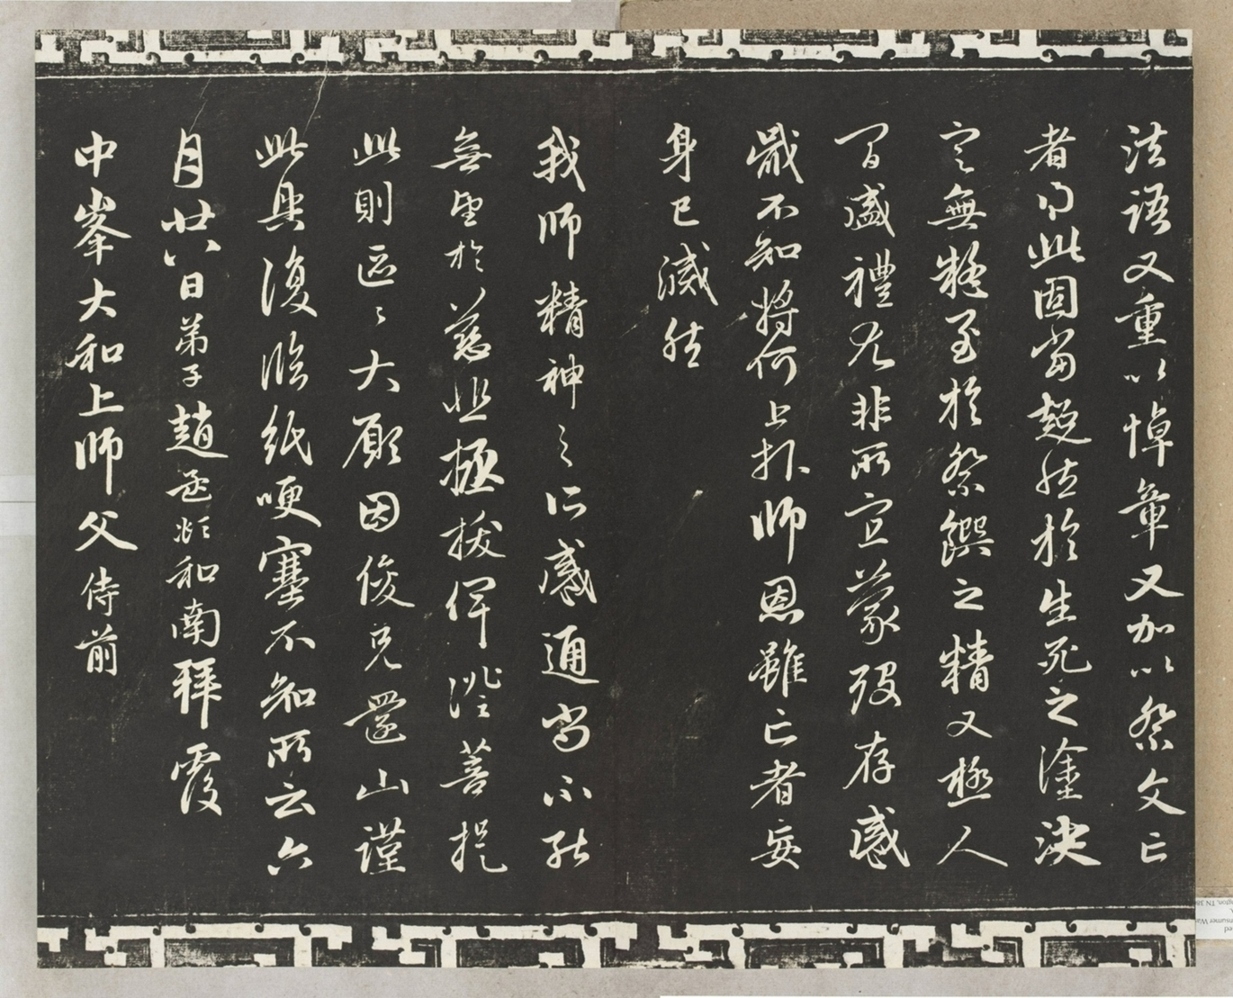 法語又重以悼章又加以祭文亡
者得此固當超然於生死之塗決
定無疑至於祭饌之精又極人
間盛禮尤非所宜蒙歿存感
戢不知將何上報師恩雖亡者妄
身已滅然
我師精神之所感通尚不能
無望於慈悲拯拔俾證菩提
此則區區大願因俊兄還山謹
此具復臨紙哽塞不知所云六
月廿八日弟子趙孟頫和南拜覆
中峯大和上師父侍前